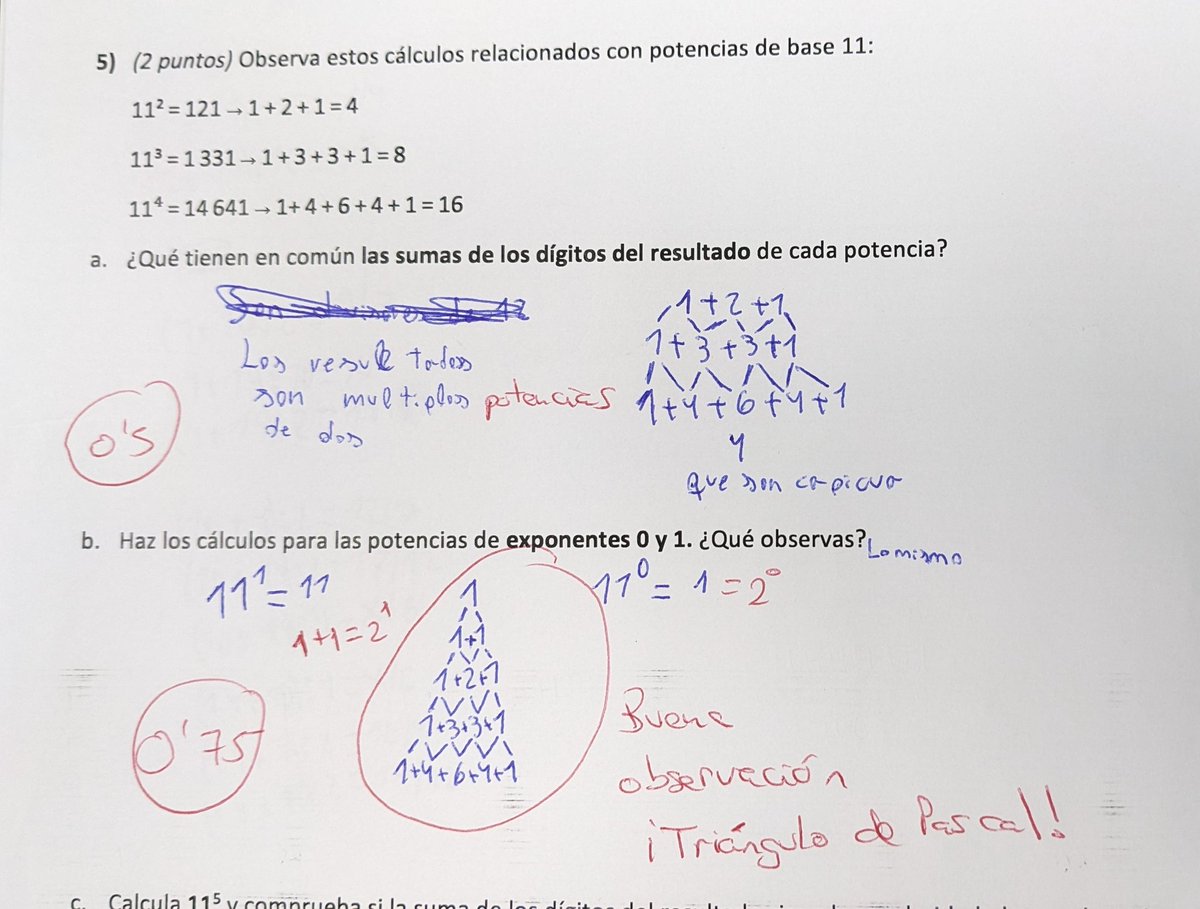 5) (2 puntos) Observa estos cálculos relacionados con potencias de base 11:
11² = 121 → 1 + 2 + 1 = 4
11³ = 1 331 → 1 + 3 + 3 + 1 = 8
11⁴ = 14 641 → 1+ 4 + 6 + 4 + 1 = 16
a. ¿Qué tienen en común las sumas de los dígitos del resultado de cada potencia?
Los resultados
son multiplos potencias
de dos
0'5
1+2+1
1+3+3+1
1+4+6+4+1
y
que son capicua
b. Haz los cálculos para las potencias de exponentes 0 y 1. ¿Qué observas? Lo mismo
11¹ = 11
1+1=2¹
11⁰ = 1 = 2⁰
1
1+1
1+2+1
1+3+3+1
1+4+6+4+1
0'75
Buena
observación
¡Triángulo de Pascal!
c. Calcula 11⁵ y comprueba si la suma de los dígitos del